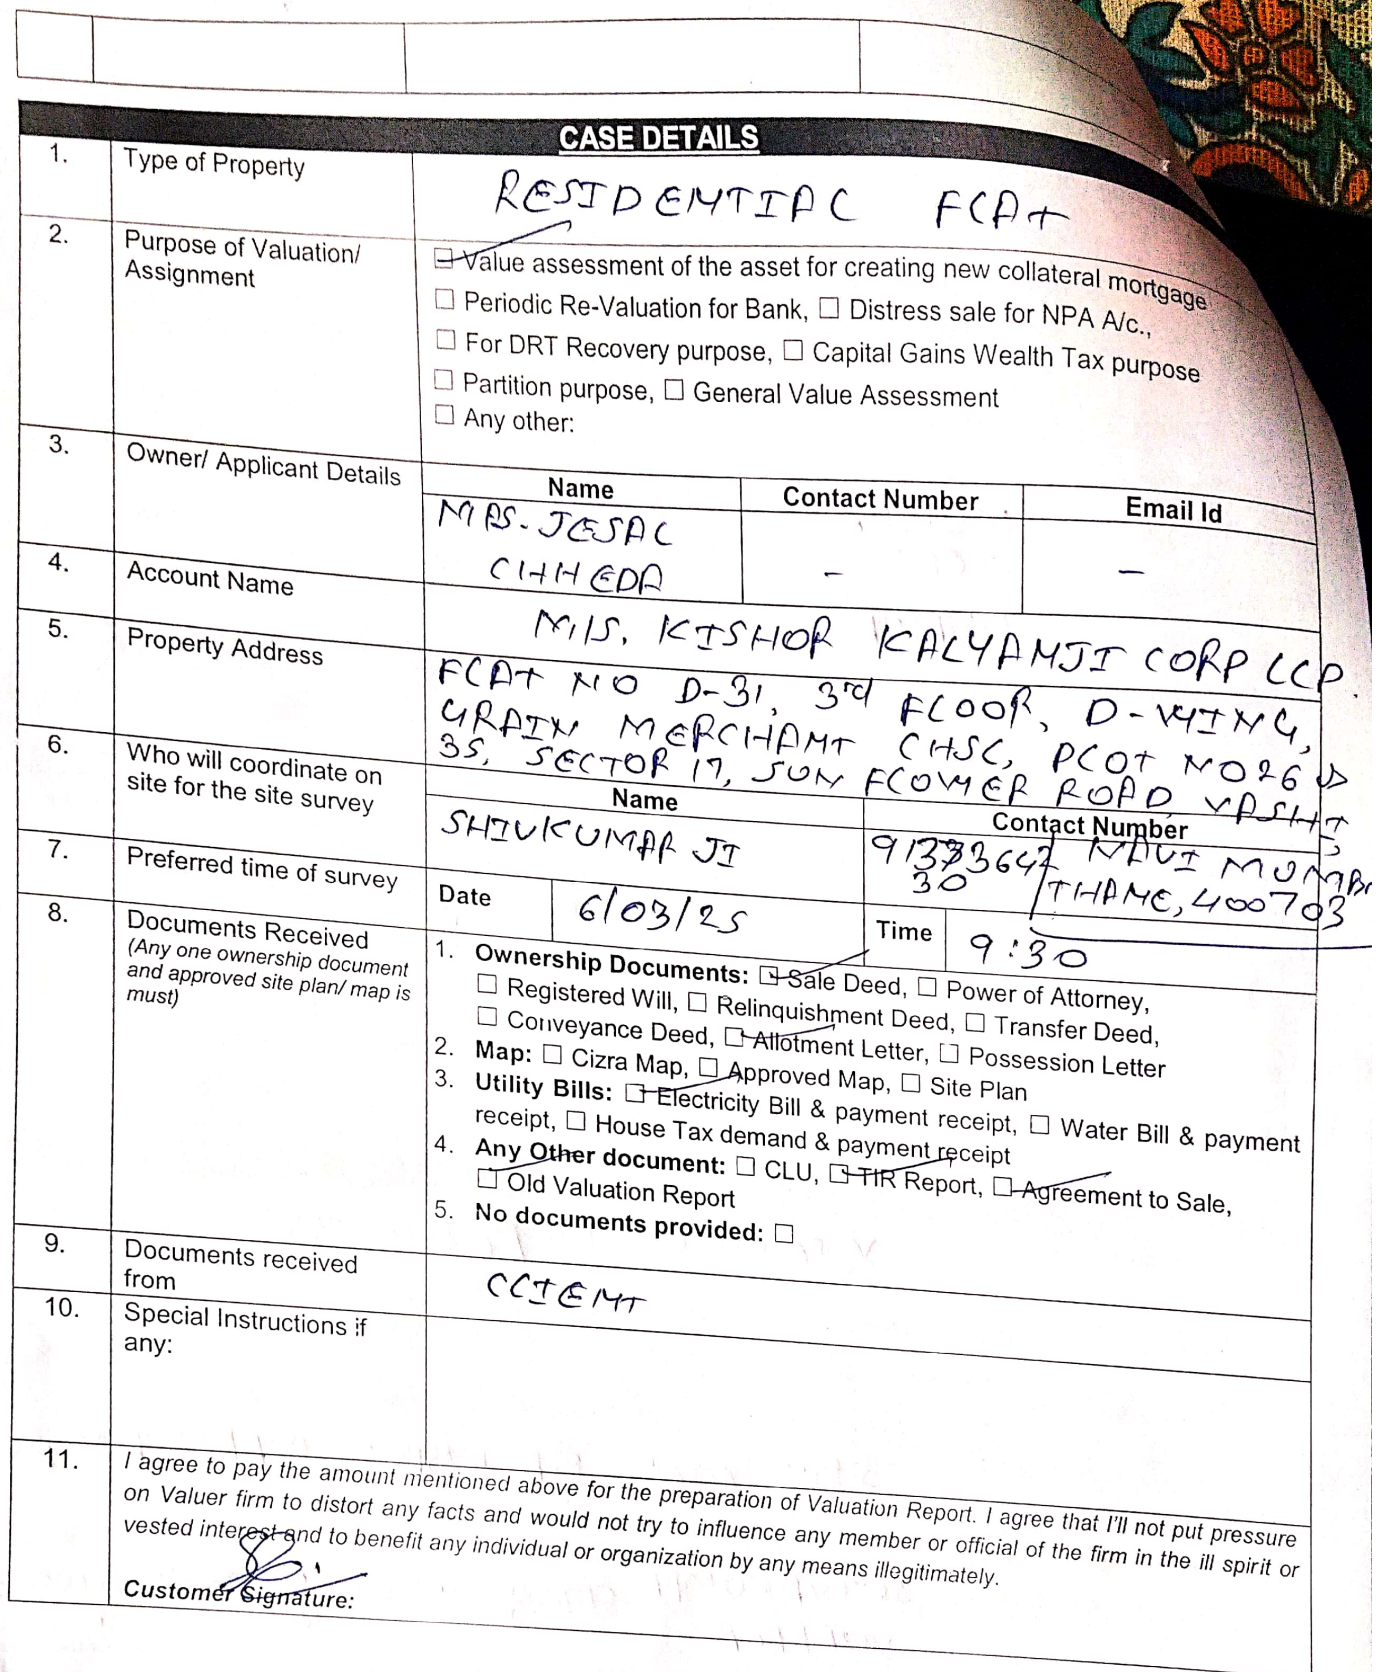 CASE DETAILS
1. Type of Property
RESIDENTIAL FLAT
2. Purpose of Valuation/
Assignment
☑ Value assessment of the asset for creating new collateral mortgage
☐ Periodic Re-Valuation for Bank, ☐ Distress sale for NPA A/c.,
☐ For DRT Recovery purpose, ☐ Capital Gains Wealth Tax purpose
☐ Partition purpose, ☐ General Value Assessment
☐ Any other:
3. Owner/ Applicant Details
Name Contact Number Email Id
MRS. JESAL
CHHEDA - -
4. Account Name
M/S. KISHOR KALYANJI CORP LLP.
5. Property Address
FLAT NO D-31, 3rd FLOOR, D-WING,
GRAIN MERCHANT CHSL, PLOT NO 26 to
35, SECTOR 17, SUN FLOWER ROAD VASHI,
NAVI MUMBAI
THANE, 400703
6. Who will coordinate on
site for the site survey
Name Contact Number
SHIVKUMAR JI
30
7. Preferred time of survey
Date 6/03/25 Time 9:30
8. Documents Received
(Any one ownership document
and approved site plan/ map is
must)
1. Ownership Documents: ☑ Sale Deed, ☐ Power of Attorney,
☐ Registered Will, ☐ Relinquishment Deed, ☐ Transfer Deed,
☐ Conveyance Deed, ☑ Allotment Letter, ☐ Possession Letter
2. Map: ☐ Cizra Map, ☐ Approved Map, ☐ Site Plan
3. Utility Bills: ☑ Electricity Bill & payment receipt, ☐ Water Bill & payment
receipt, ☐ House Tax demand & payment receipt
4. Any Other document: ☐ CLU, ☑ TIR Report, ☑ Agreement to Sale,
☑ Old Valuation Report
5. No documents provided: ☐
9. Documents received
from
CLIENT
10. Special Instructions if
any:
11. I agree to pay the amount mentioned above for the preparation of Valuation Report. I agree that I'll not put pressure
on Valuer firm to distort any facts and would not try to influence any member or official of the firm in the ill spirit or
vested interest and to benefit any individual or organization by any means illegitimately.
Customer Signature: